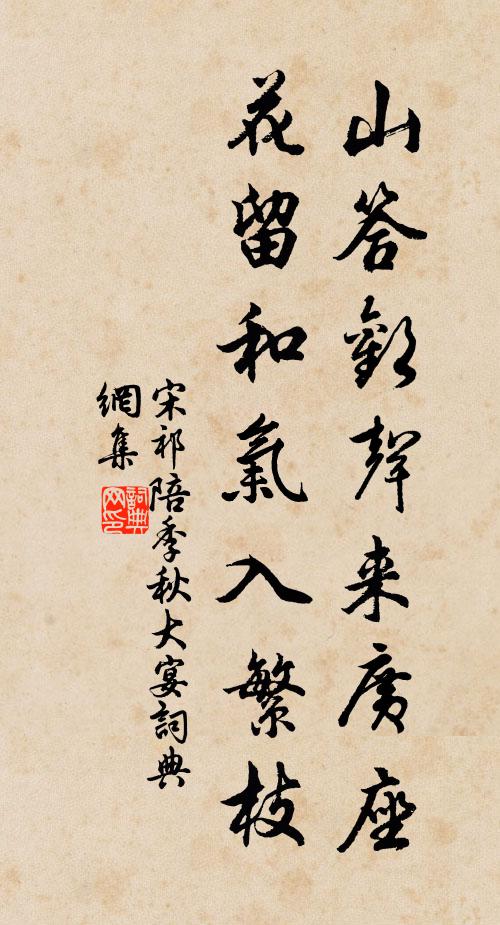 山答歡聲来廣座
花留和氣入繁枝
宋祁陪季秋大宴詞典
網集
詞典
网印